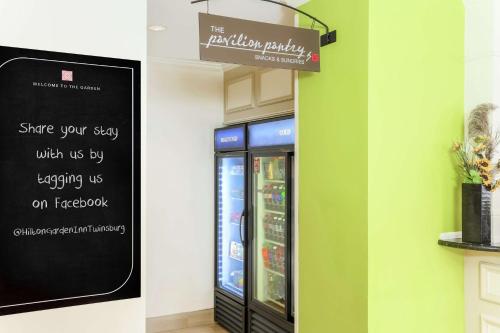 WELCOME TO THE GARDEN
Share your stay
with us by
tagging us
on Facebook
@HiltonGardenInnTwinsburg
THE
pavilion pantry
SNACKS & SUNDRIES